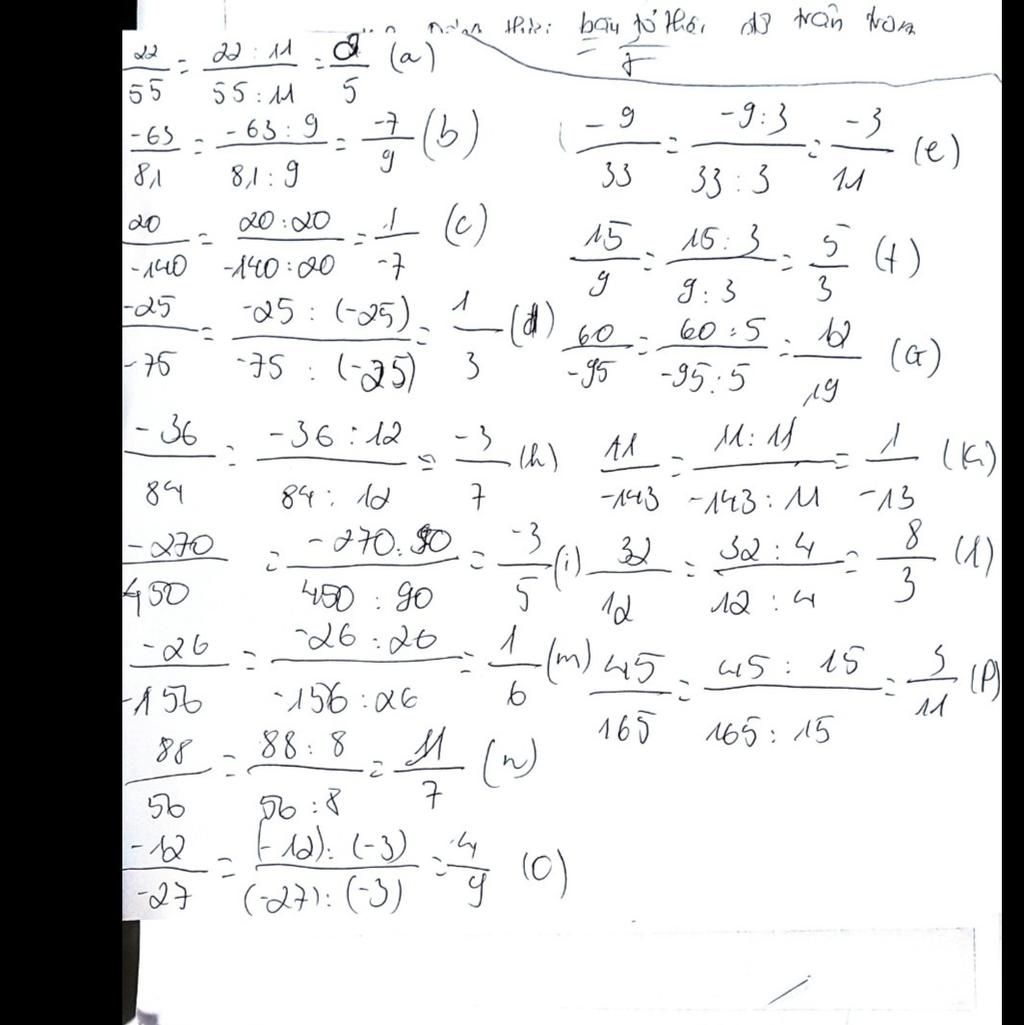 bay tỏ thái độ trân trọn
22/55 = 22 : 11/55 : 11 = 2/5 (a)
-63/81 = -63 : 9/81 : 9 = -7/9 (b)
-9/33 = -9 : 3/33 : 3 = -3/11 (e)
20/-140 = 20 : 20/-140 : 20 = 1/-7 (c)
15/9 = 15 : 3/9 : 3 = 5/3 (f)
-25/-75 = -25 : (-25)/-75 : (-25) = 1/3 (d)
60/-95 = 60 : 5/-95 : 5 = 12/19 (G)
-36/84 = -36 : 12/84 : 12 = -3/7 (h)
11/-143 = 11 : 11/-143 : 11 = 1/-13 (K)
-270/450 = -270 : 90/450 : 90 = -3/5 (i)
32/12 = 32 : 4/12 : 4 = 8/3 (l)
-26/-156 = -26 : 26/-156 : 26 = 1/6 (m)
45/165 = 45 : 15/165 : 15 = 3/11 (P)
88/56 = 88 : 8/56 : 8 = 11/7 (n)
-12/-27 = (-12) : (-3)/(-27) : (-3) = 4/9 (O)